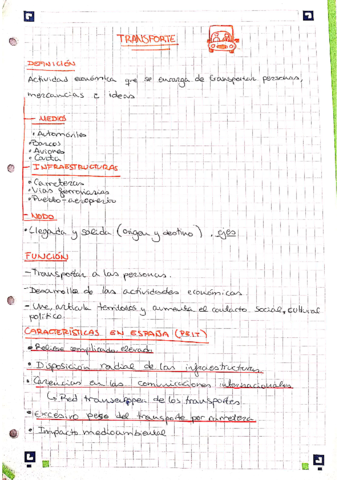 TRANSPORTE
DEFINICIÓN
Actividad económica que se encarga de transportar personas,
mercancías e ideas
- MEDIOS
• Automóviles
• Barcos
• Aviones
- INFRAESTRUCTURAS
• Carreteras
• Vías ferroviarias
• Puerto-aeropuerto
- NODO
• Llegada y salida (origen y destino)
FUNCIÓN
- Transportar a las personas.
- Desarrollo de las actividades económicas.
- Une, articula territorios y aumenta el contacto social, cultural
político.
CARACTERÍSTICAS EN ESPAÑA (PEIT)
• Relieve elevado
• Disposición radial de las infraestructuras
• Carencias en las comunicaciones internacionales
↳ Red transeuropea de los transportes.
• Excesivo peso del transporte por carretera
• Impacto medioambiental